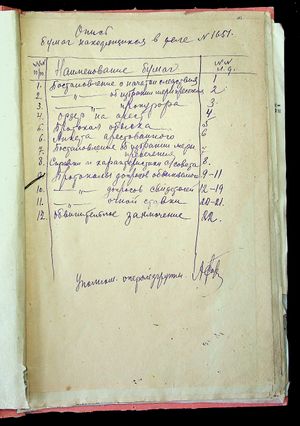 Опись
бумаг находящихся в деле №1651.
№№ п/п Наименование бумаг №№ л.д.
1. Постановление о начатии следствия 1
2. —„— об избрании меры пресечения 2
3. —„— прокурора 3
4. Ордер на арест 4
5. Протокол обыска 5
6. Анкета арестованного 6
7. Постановление об избрании меры пресечения 7
8. Справки и характеристики с/совета 8.
9. Протоколы допросов обвиняемого 9-11
10. —„— допросов свидетелей 12-19
11. —„— очной ставки 20-21
12. Обвинительное заключение 22.
Уполном. оперчекгруппы